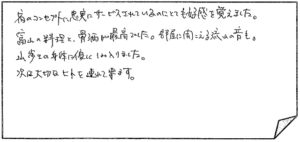 宿のコンセプトに忠実にサービスされているのにとても好感を覚えました。
富山の料理と、胃袋が最高でした。部屋に聞こえる流山の音も
山歩きの身体に優しくしみ入りました。
次は大切なヒトを連れて来ます。